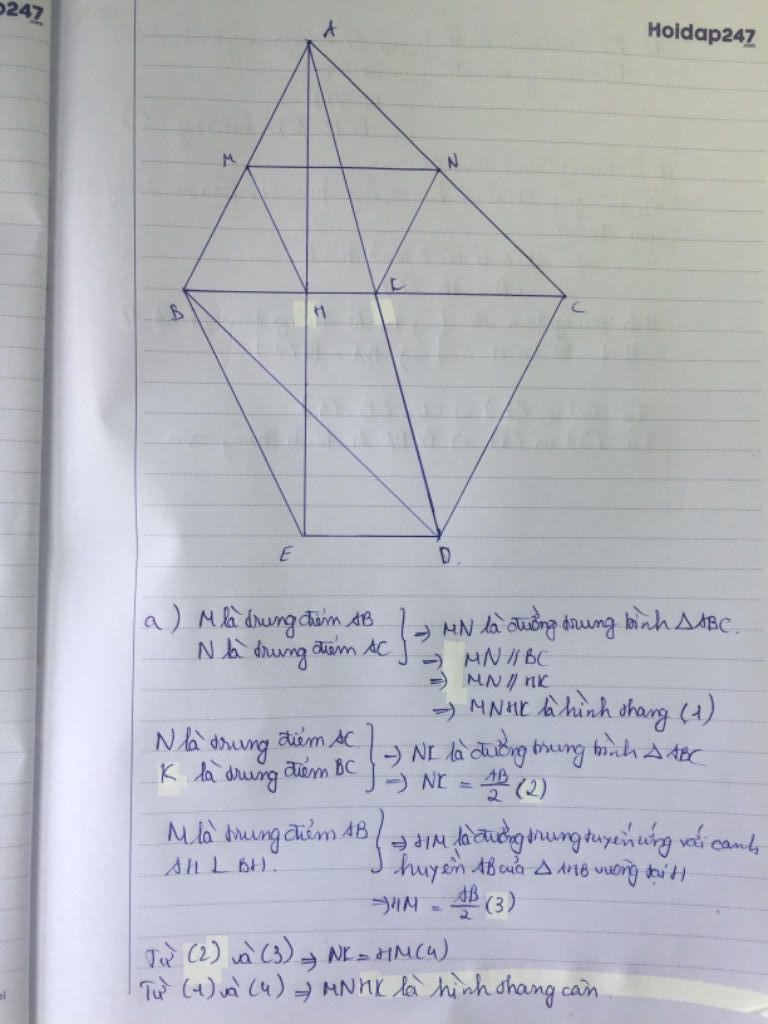 247
Hoidap247
A
M
N
B
H
K
C
E
D.
a) M là trung điểm AB
N là trung điểm AC
⇒ MN là đường trung bình △ABC.
⇒ MN // BC
⇒ MN // HK
⇒ MNHK là hình thang (1)
N là trung điểm AC
K là trung điểm BC
⇒ NK là đường trung bình △ABC
⇒ NK = AB/2 (2)
M là trung điểm AB
AH ⊥ BH.
⇒ HM là đường trung tuyến ứng với cạnh
huyền AB của △AHB vuông tại H
⇒ HM = AB/2 (3)
Từ (2) và (3) ⇒ NK = HM (4)
Từ (1) và (4) ⇒ MNHK là hình thang cân